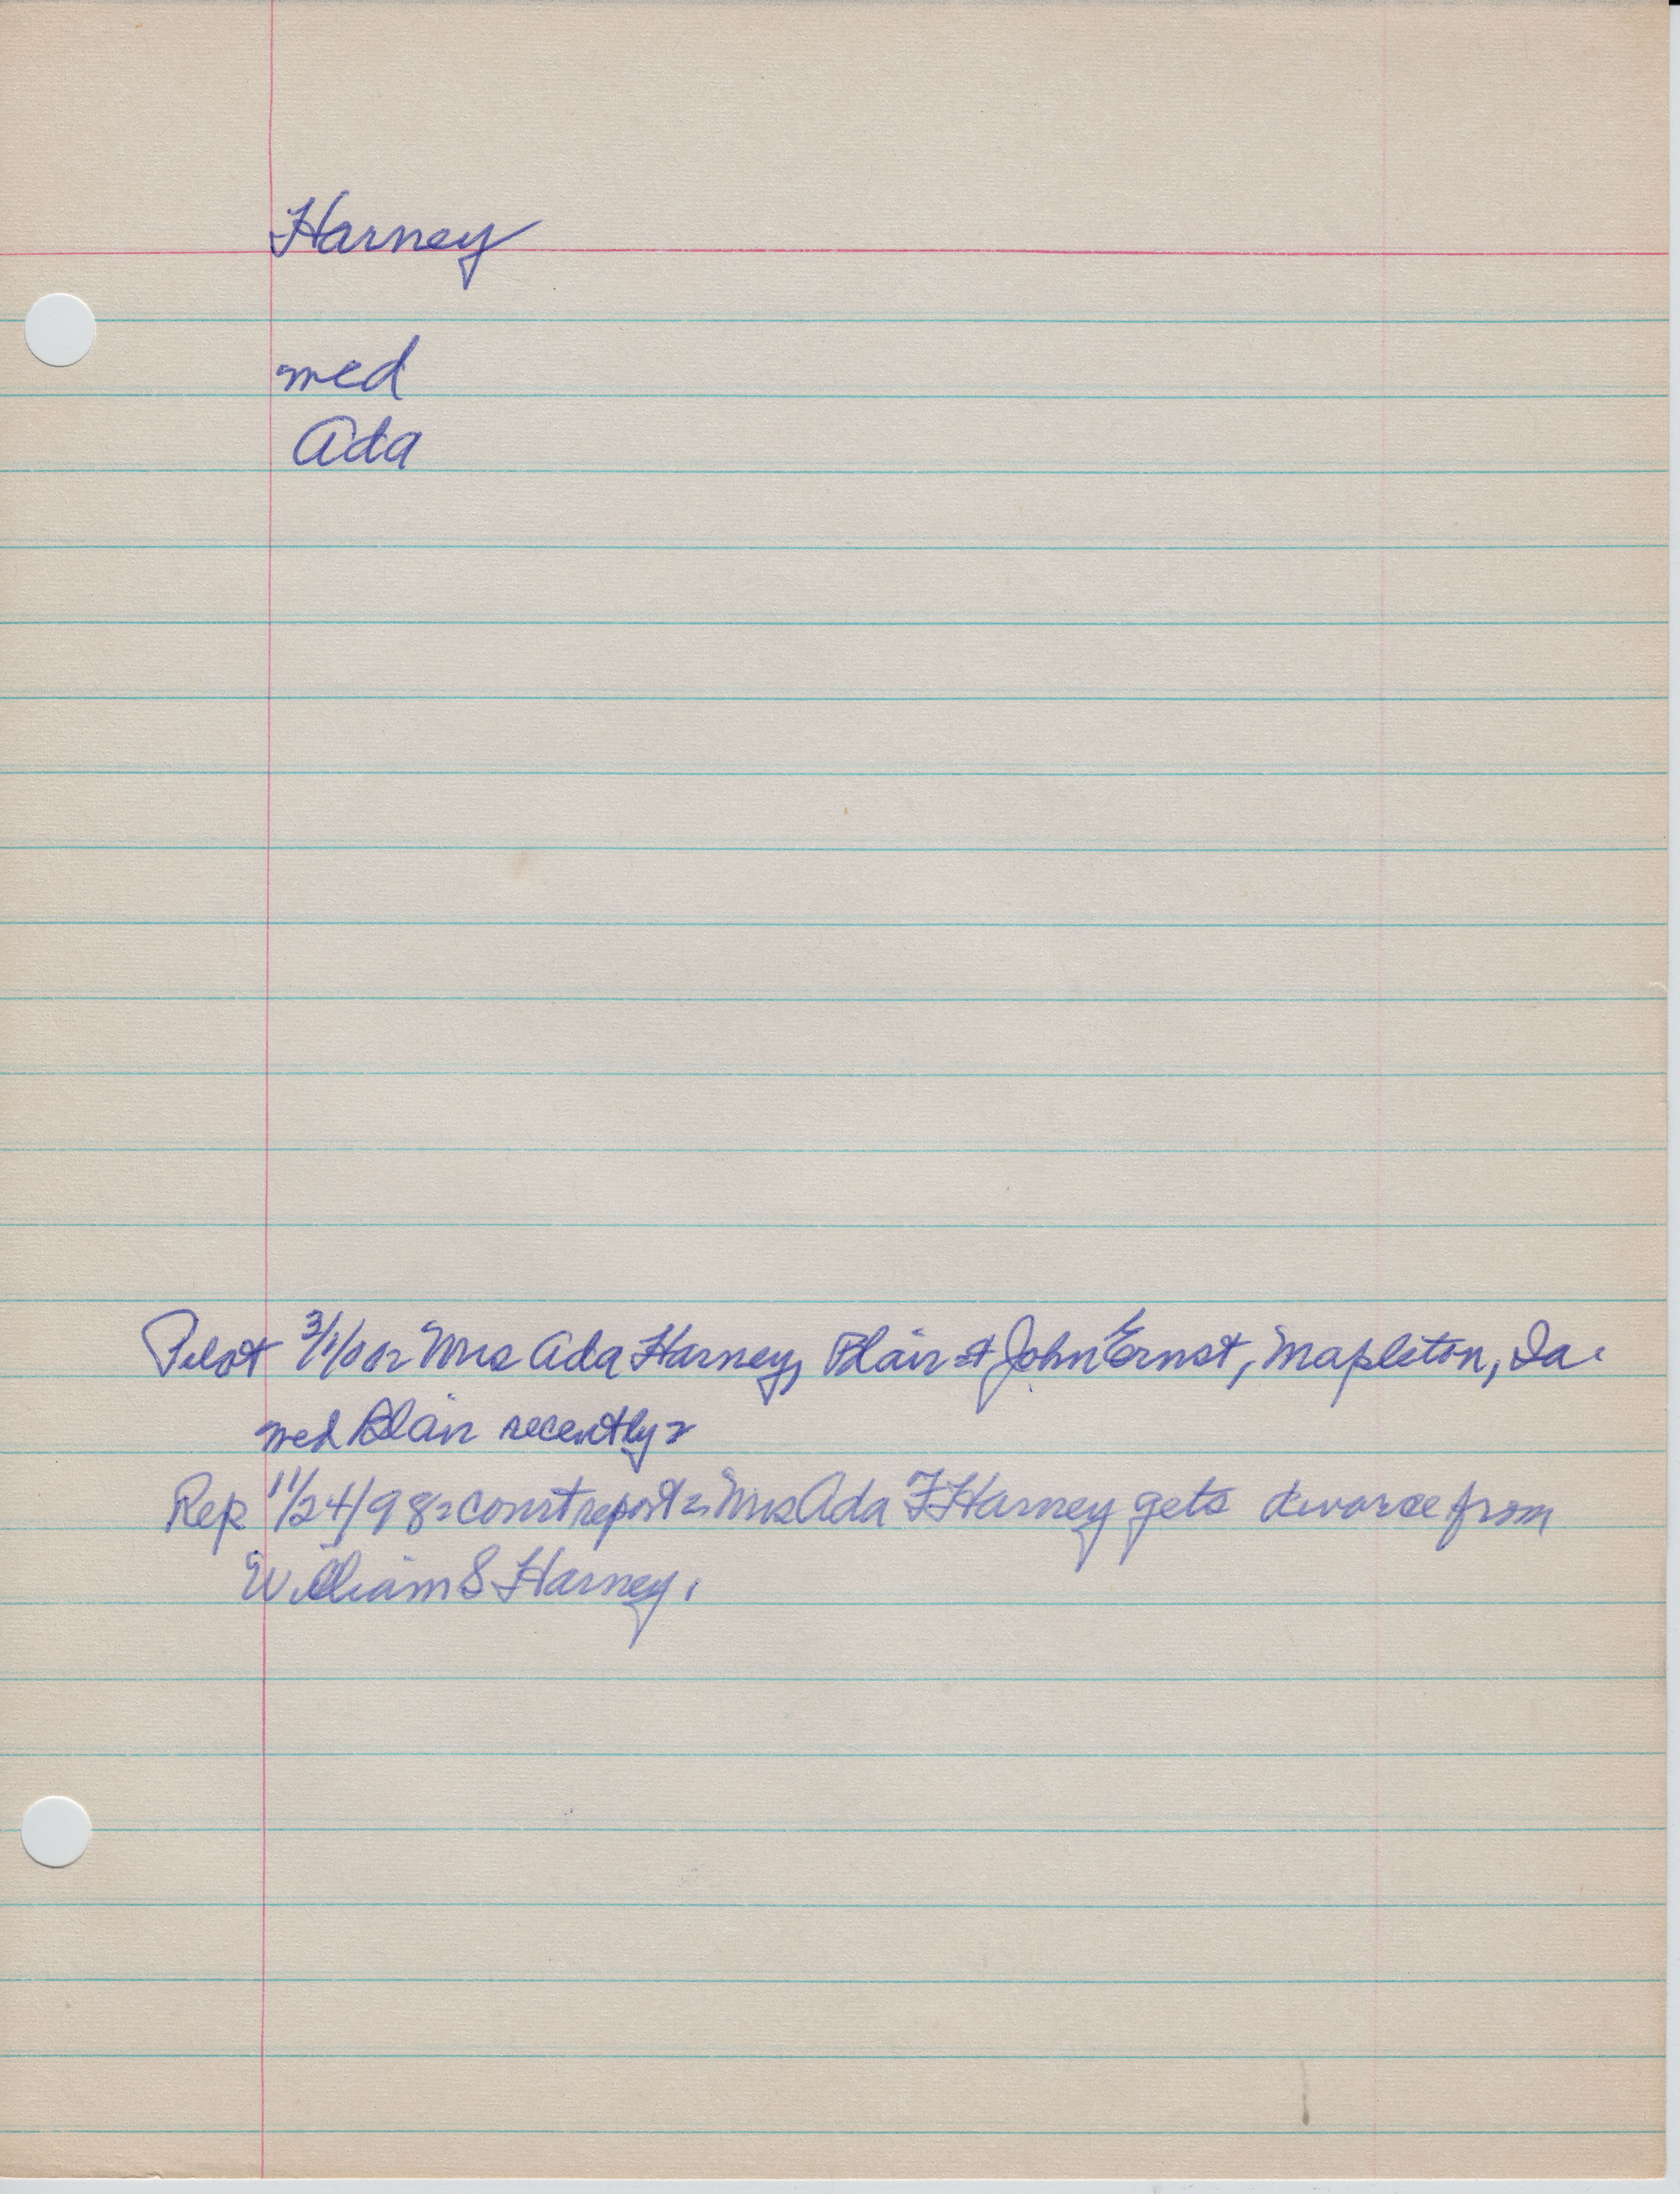 Harney
med
Ada
Pilot 3/1/00: Mrs Ada Harney, Blair & John Ernst, Mapleton, Ia.
med Blair recently.
Rep 11/24/98: court report: Mrs Ada F Harney gets divorce from
William S Harney.